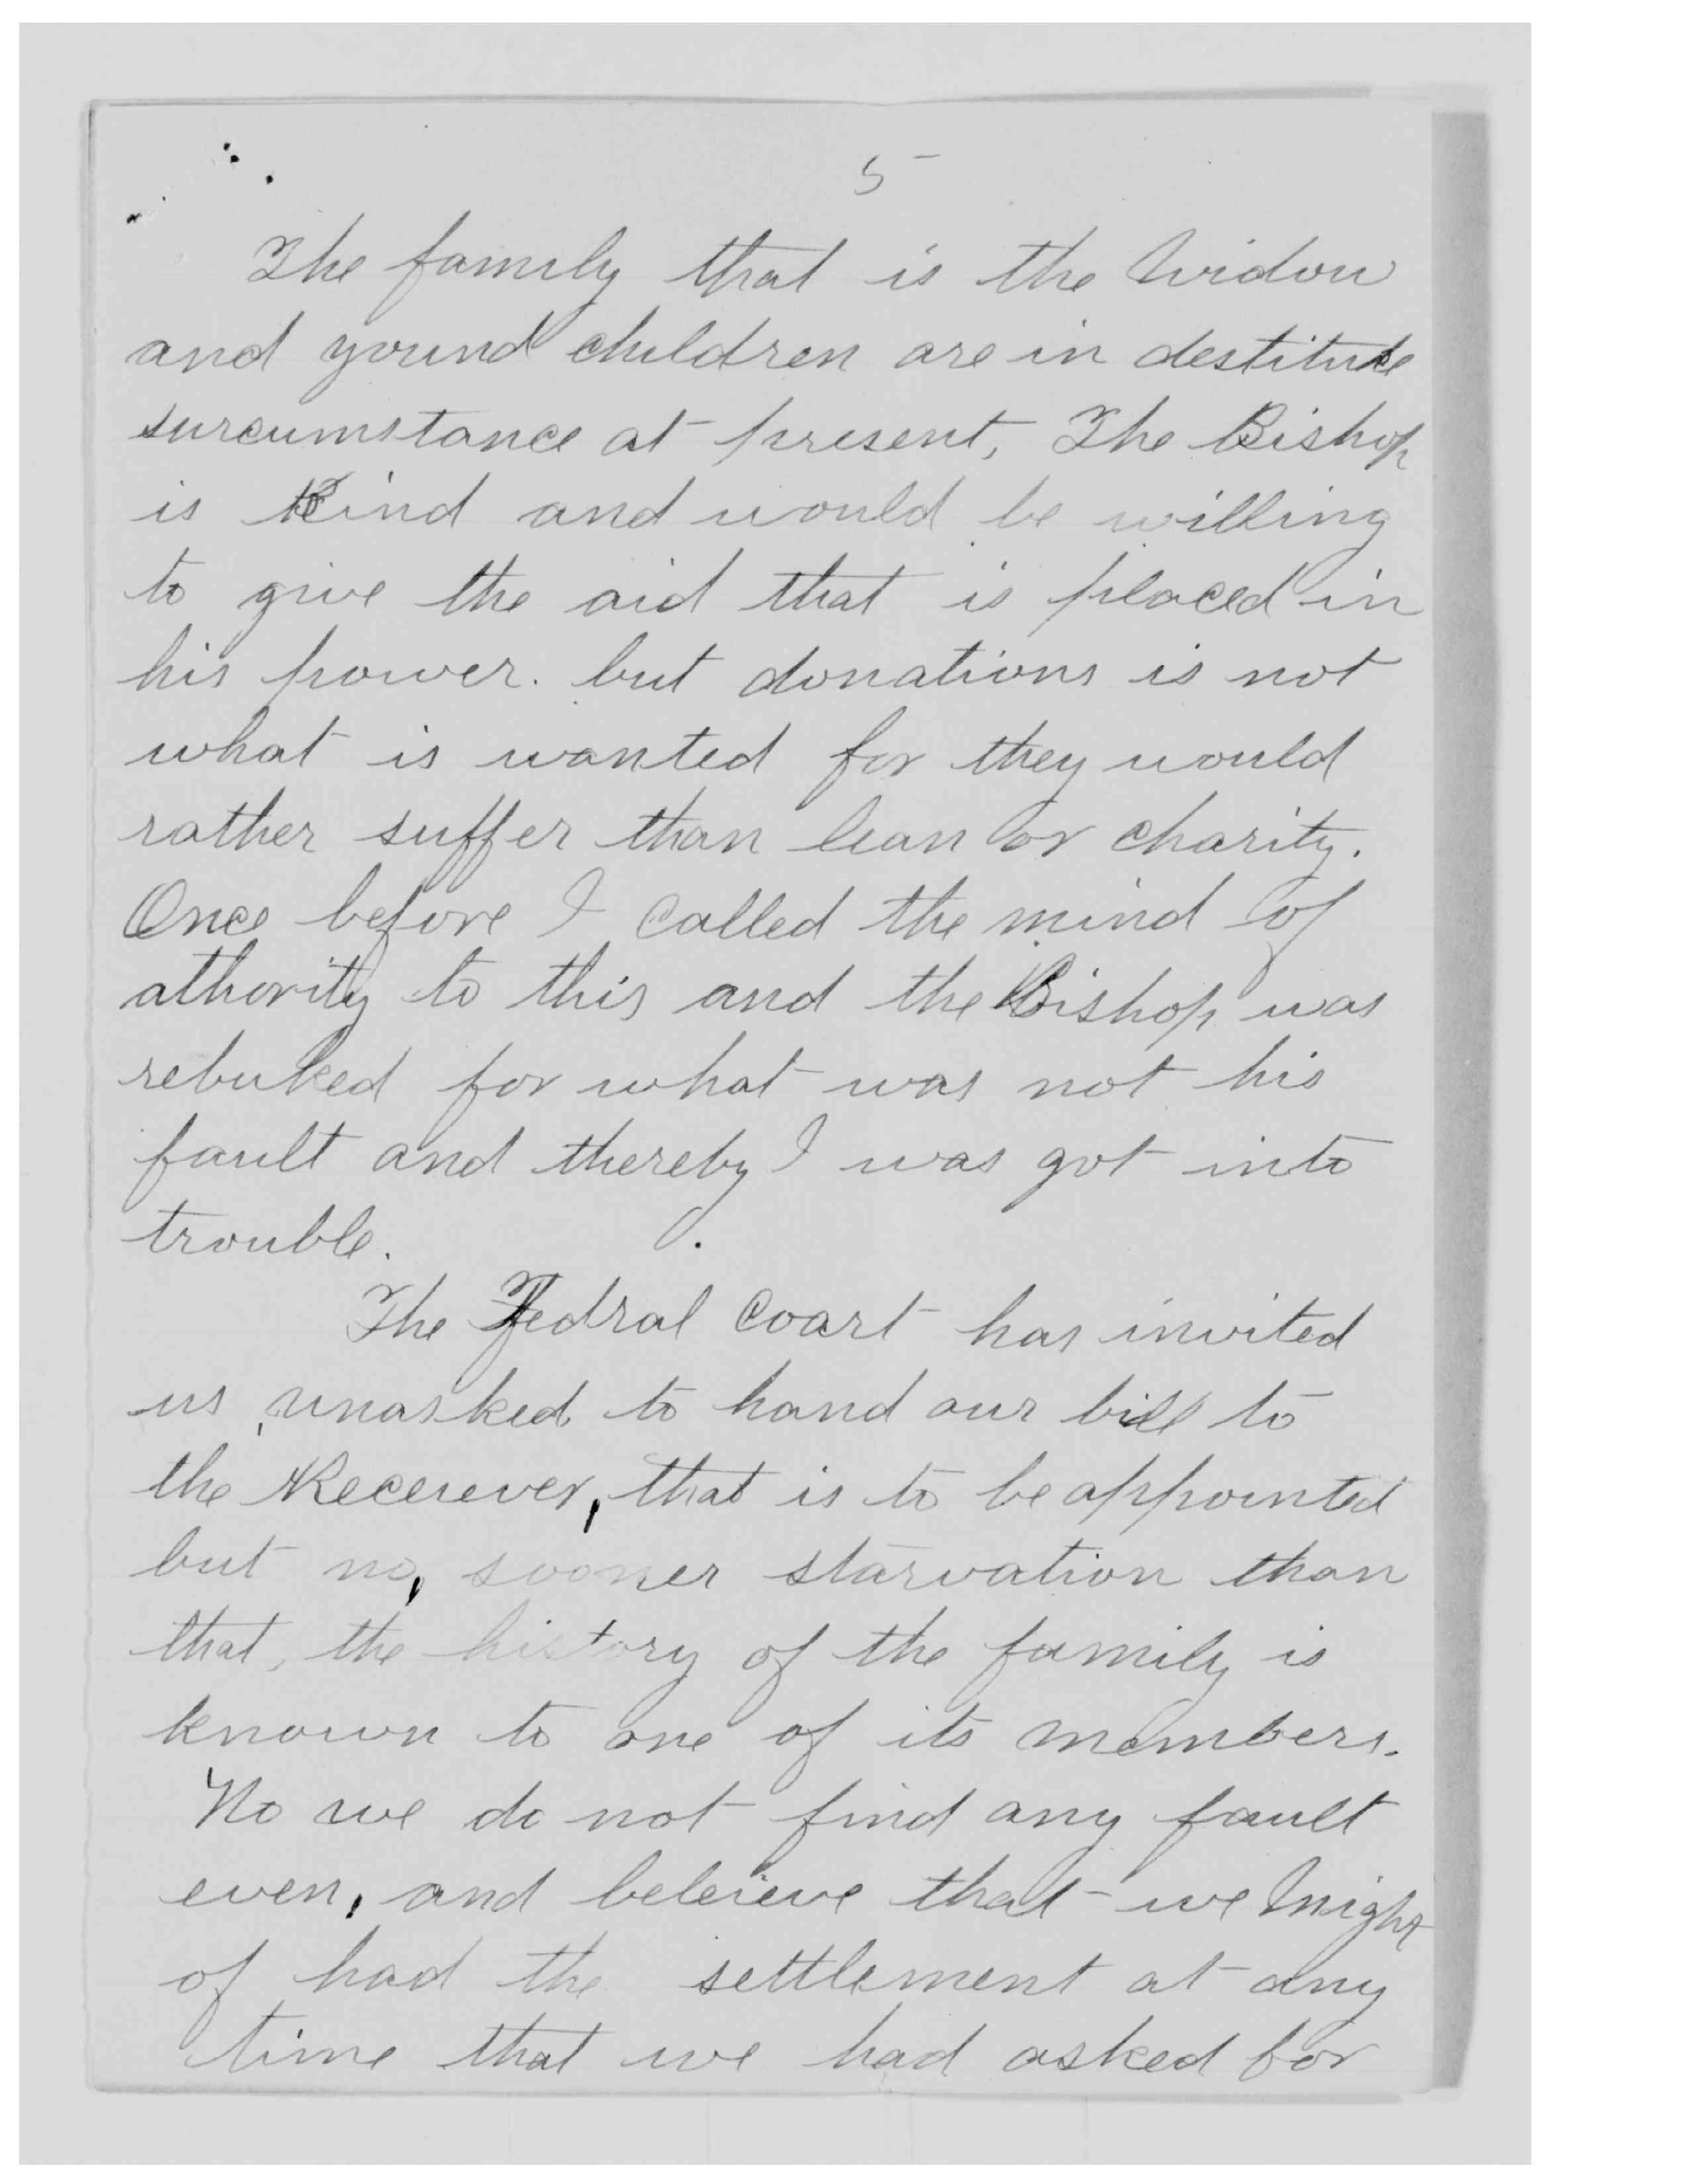 5
The family that is the Widow
and yound children are in destitute
surcumstance at present, The Bishop
is Kind and would be willing
to give the aid that is placed in
his power. but donations is not
what is wanted for they would
rather suffer than lean or charity.
Once before I called the mind of
athority to this and the Bishop was
rebuked for what was not his
fault and thereby I was got into
trouble.
The Fedral Coart has invited
us unasked to hand our bill to
the Receiever, that is to be appointed
but no, sooner starvation than
that, the history of the family is
known to one of its members.
No we do not find any fault
even, and beleieve that we Might
of had the settlement at any
time that we had asked for